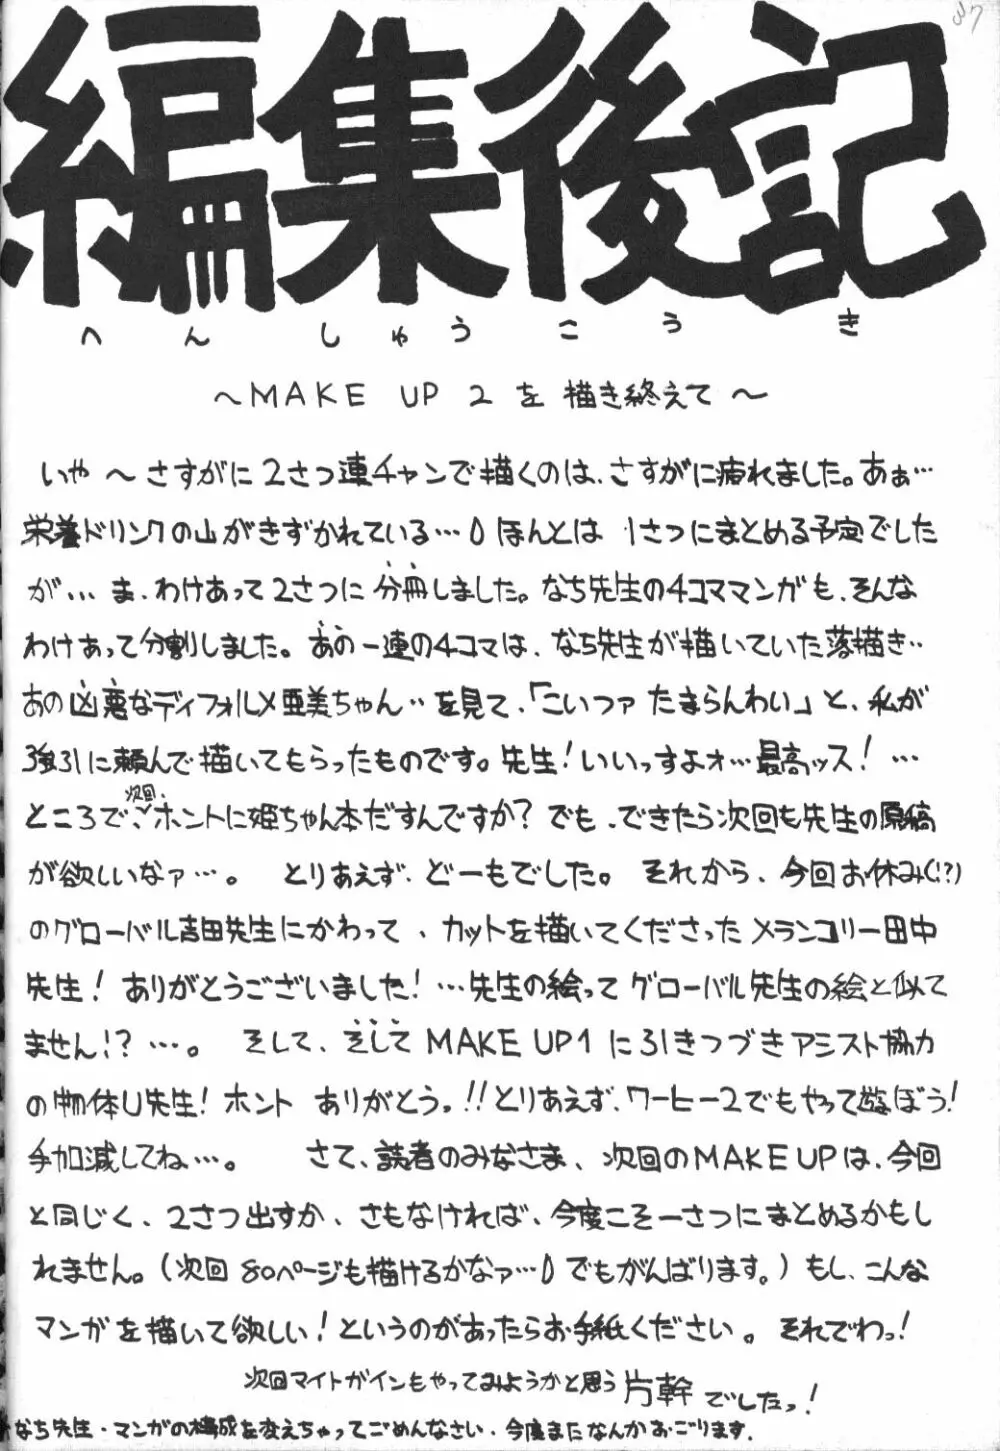 37
編集後記
へんしゅうこうき
～MAKE UP 2 を描き終えて～
いや～さすがに2さつ連チャンで描くのは、さすがに疲れました。あぁ…
栄養ドリンクの山がきずかれている… ほんとは1さつにまとめる予定でした
が… ま、わけあって2さつに分冊しました。なち先生の4コママンガも、そんな
わけあって分割しました。あの一連の4コマは、なち先生が描いていた落描き‥
あの凶悪なディフォルメ亜美ちゃん‥を見て、「こいつァたまらんわい」と、私が
強引に頼んで描いてもらったものです。先生!いいっすよォ…最高ッス!…
次回、
ところでホントに姫ちゃん本だすんですか?でも、できたら次回も先生の原稿
が欲しいなァ…。 とりあえず、どーもでした。 それから、今回お休み(!?)
のグローバル吉田先生にかわって、カットを描いてくださったメランコリー田中
先生!ありがとうございました!…先生の絵ってグローバル先生の絵と似て
ません!?…。 そして、そしてMAKE UP1に引きつづきアシスト協力
の物体U先生!ホント ありがとうっ!!とりあえず、ワーヒー2でもやって遊ぼう!
手加減してね…。 さて、読者のみなさま、次回のMAKE UPは、今回
と同じく、2さつ出すか、さもなければ、今度こそ一さつにまとめるかもし
れません。(次回80ページも描けるかなァ… でもがんばります。)もし、こんな
マンガを描いて欲しい!というのがあったらお手紙ください。それでわっ!
次回マイトガインもやってみようかと思う片幹でしたっ!
なち先生・マンガの構成を変えちゃってごめんなさい・今度またなんかおごります.